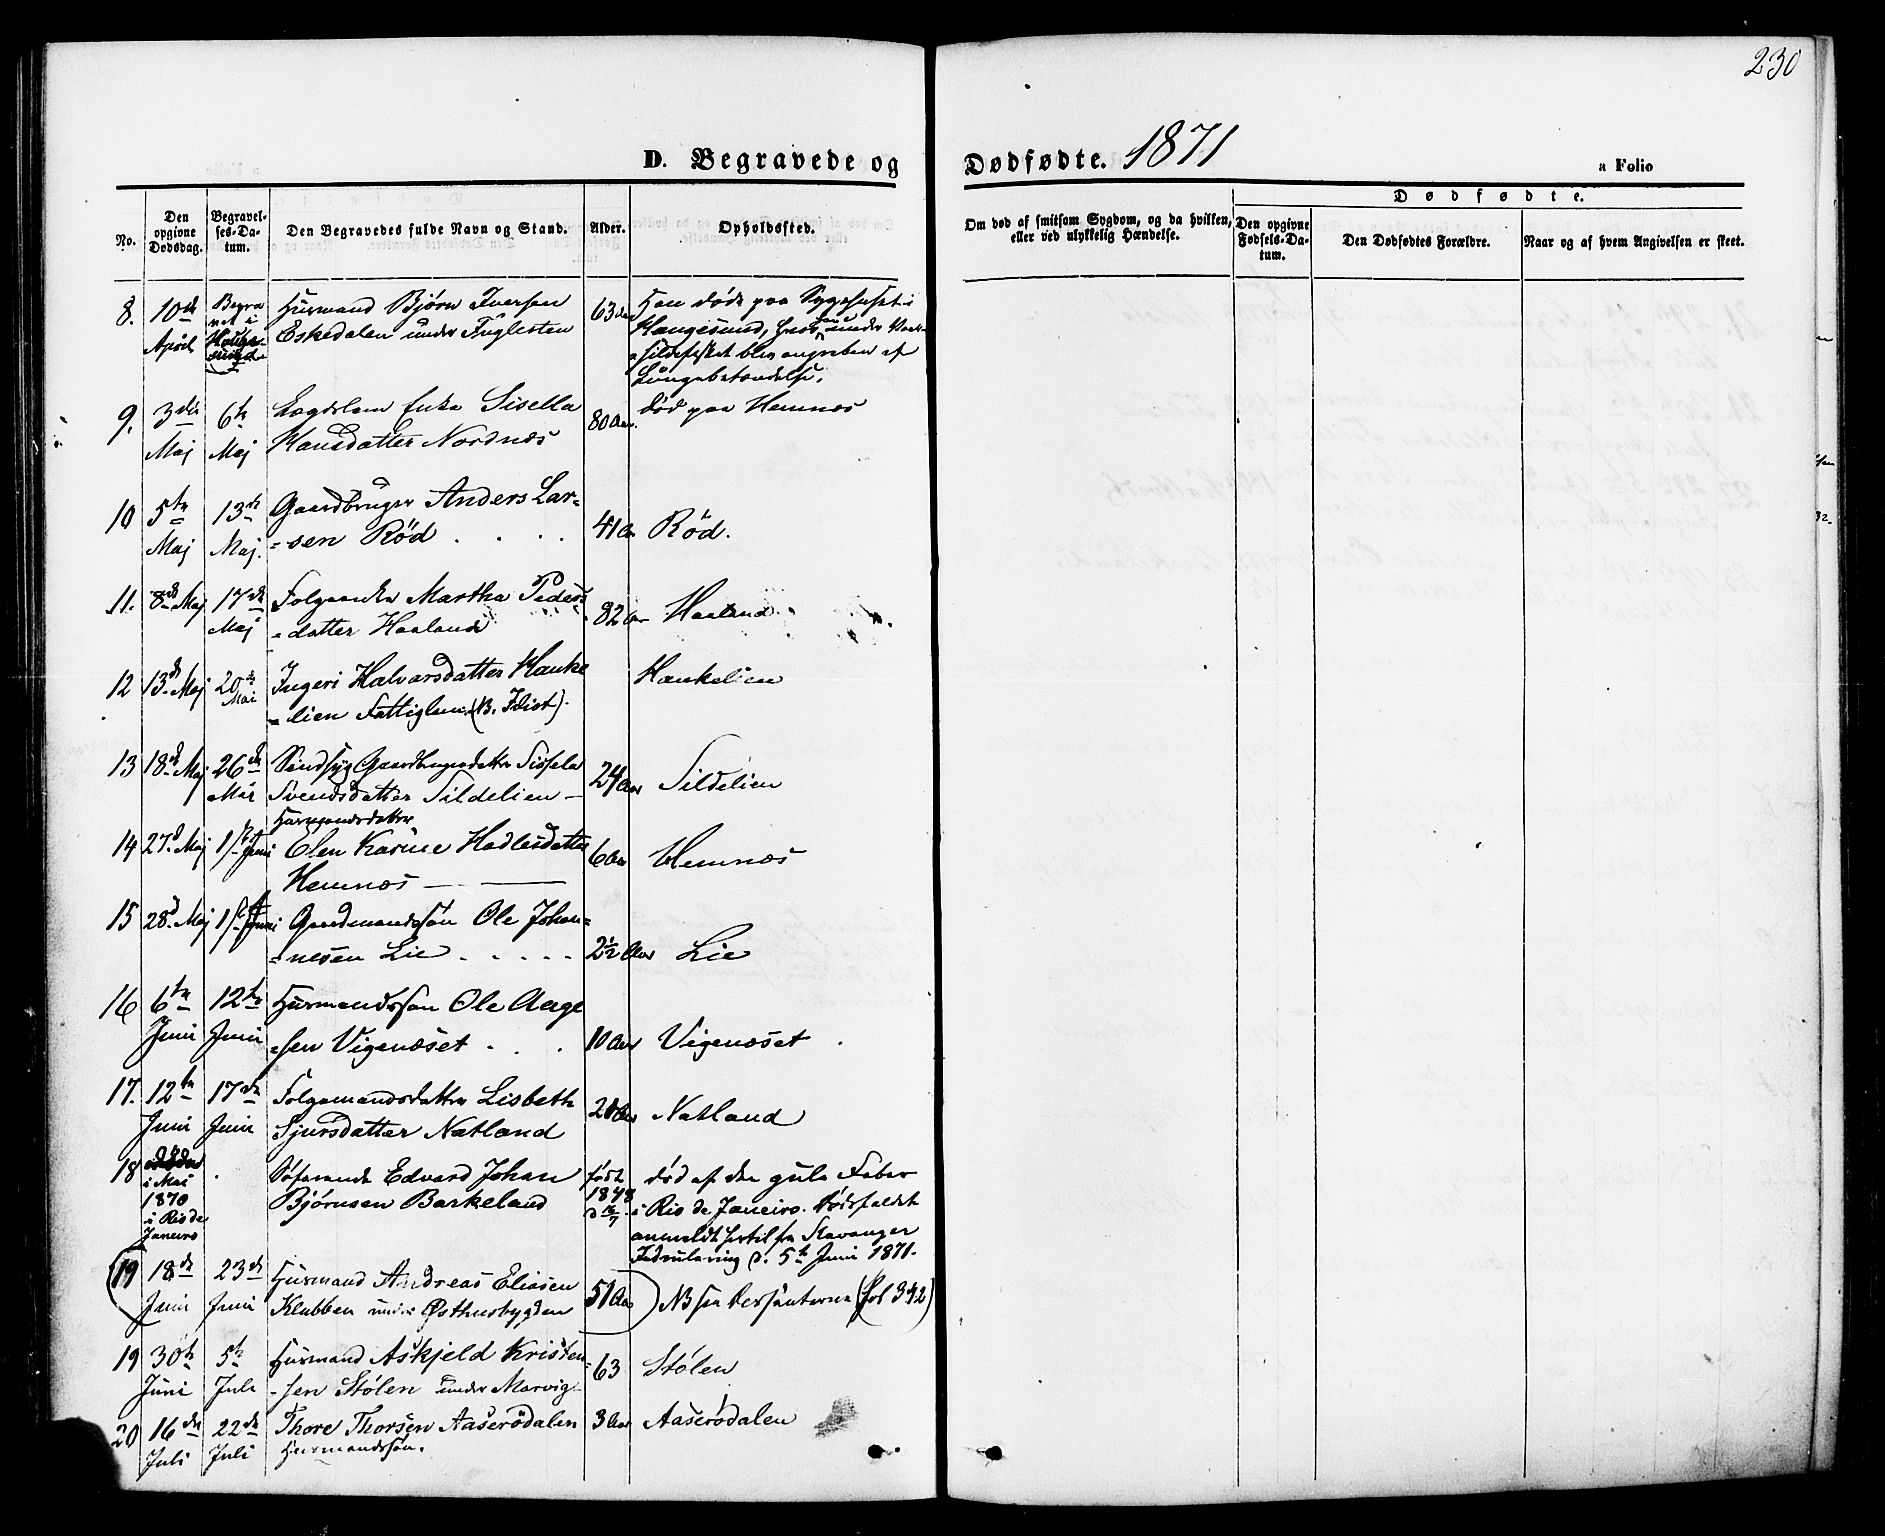 230
D. Begravede og
Dødfødte. 1871
a Folio
No.
Den opgivne Dødsdag.
Begravelses-Datum.
Den Begravedes fulde Navn og Stand.
Alder.
Opholdssted.
Om død af smitsom Sygdom, og da hvilken, eller ved ulykkelig Hændelse.
Dødfødte.
Den opgivne Fødsels-Datum.
Den Dødfødtes Forældre.
Naar og af hvem Angivelsen er skeet.
8. 10de April
Begravet i Haugesund
Husmand Bjørn Iversen
Eskedalen under Fuglesten
63 Aar
Han døde paa Sygehuset i
Haugesund, hvor han under Vaar-
sildefisket blev angreben af
Lungebetændelse.
9. 3die Maj 6te Maj
Lægdslem Enke Sisella
Hansdatter Nordnæs
80 Aar.
død paa Hemnæs
10 5te Maj 13de Maj.
Gaardbruger Anders Lar=
=sen Rød . . . .
41 Aar
Rød.
11. 8de Maj 17de Maj
Folgeenke Martha Peders=
=datter Haaland
82 Aar
Haaland
12 13de Maj 20de Mai
Ingeri Halvarsdatter Hauke
=lien Fattiglem (NB. Idiot).
Haukelien
13 18de Maj 26de Mai
Sindssyg Gaardbrugerdatter Sissela
Svendsdatter Sildelien —
24 Aar
Sildelien
14 27de Maj 1ste Juni
Husmandsdatter
Elen Karine Hadlesdatter
Hemnæs — —
6 Aar
Hemnæs
15 28de Maj 1ste Juni
Gaardmandssøn Ole Johan=
=nesen Lie . . . . .
2½ Aar
Lie
16 6te Juni 12te Juni
Husmandssøn Ole Aage
=sen Vigenæset . . .
10 Aar
Vigenæset
17. 12te Juni 17de Juni
Folgemandsdatter Lisbeth
Sjursdatter Natland
20 Aar
Natland
18 død i Mai 1870 i Rio de Janeiro
Søfarende Edvard Johan
Bjørnsen Barkeland
født 1848 d 16/7
død af den gule Feber
i Rio de Janeiro. Dødsfaldet
anmeldt hertil fra Stavanger
Indrullering d. 5te Juni 1871.
19 18de Juni 23de Juni
Husmand Andreas Eliasen
Klubben under Østhusbygden
51 Aar
NB se Dessenterne (Fol 342)
19 30te Juni 5te Juli
Husmand Askjeld Kristen=
=sen Stølen under Marvig
63
Stølen
20 16de Juli 22de Juli
Thore Thorsen Aaserødalen
Husmandssøn.
3 Aar
Aaserødalen